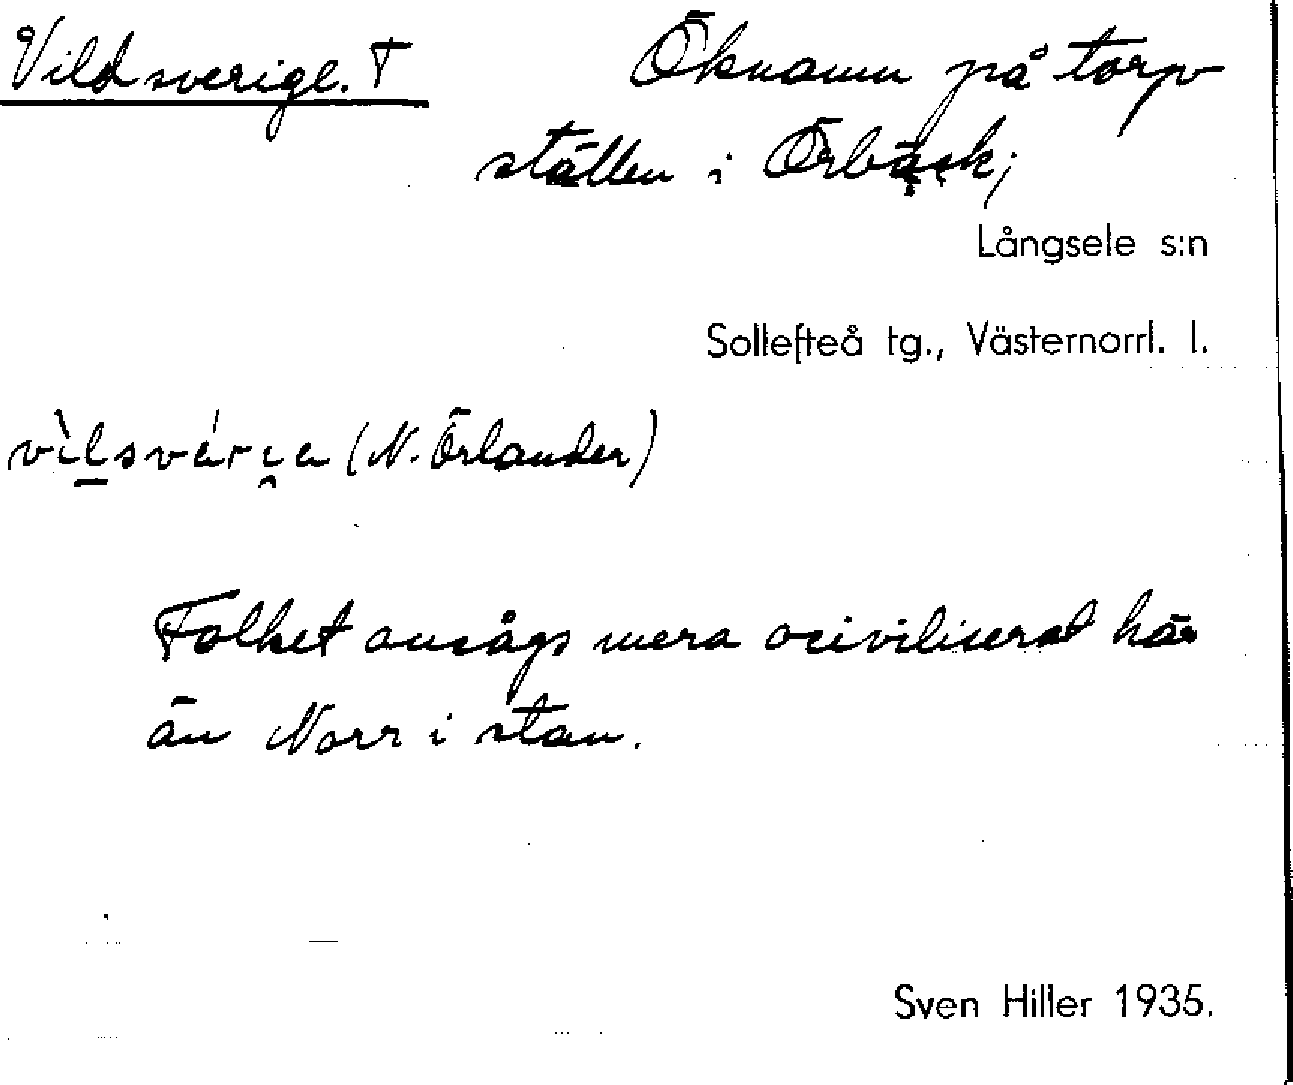 Vildsverige. † Öknamn på torp
ställen i Örbäck;
Långsele s:n
Sollefteå tg., Västernorrl. l.
(N. Örlander)
Folket ansågs mera ociviliserat här
än Norr i stan.
Sven Hiller 1935.